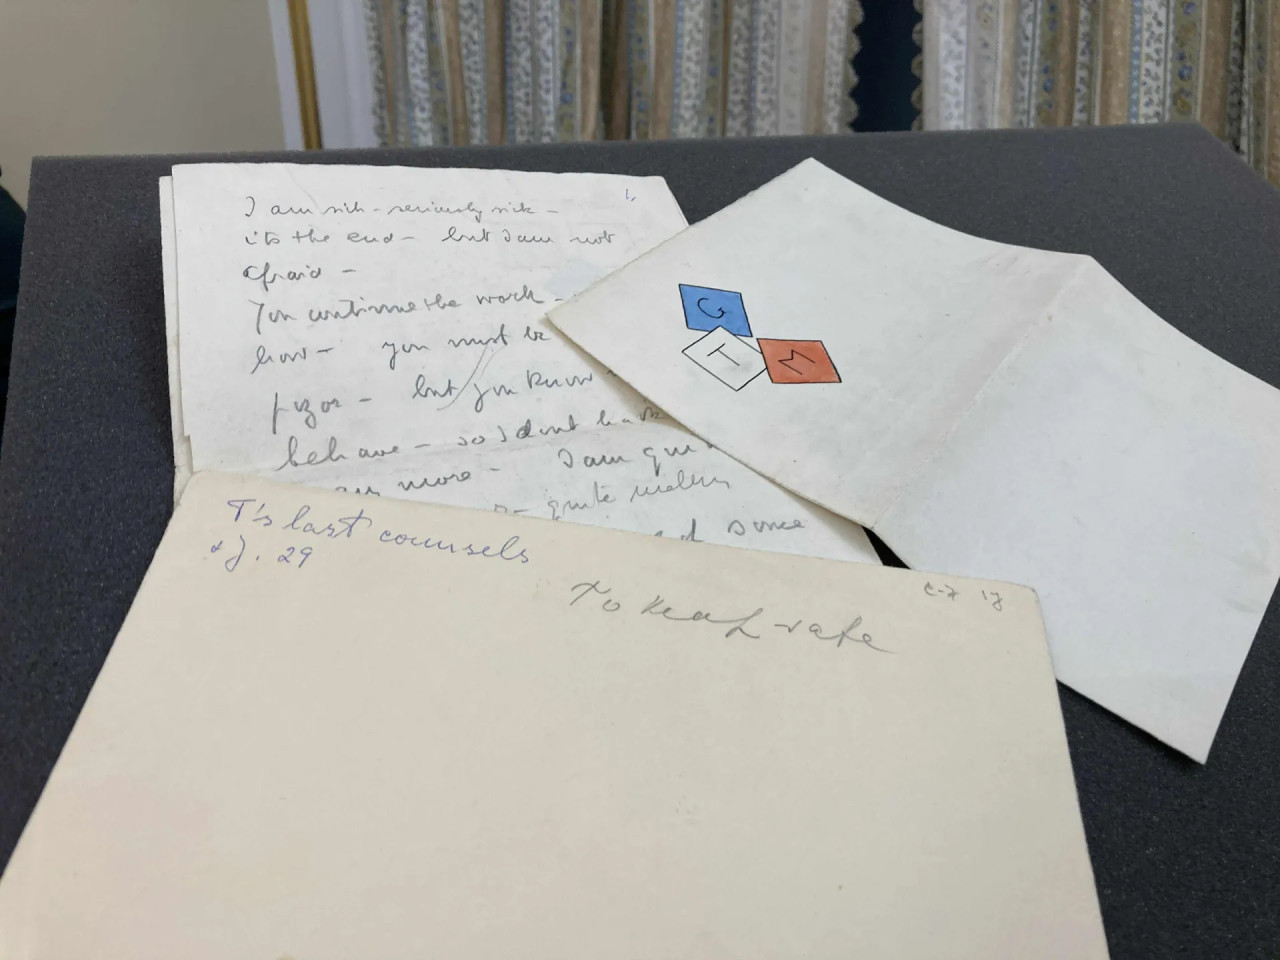 1,
I am sick - seriously sick -
its the end - but I am not
afraid -
You continue the work -
how - you must be
but you know
behave - so I dont have
any more - I am
quite
since
G
T
M
T's last counsels
J. 29
To Keap safe